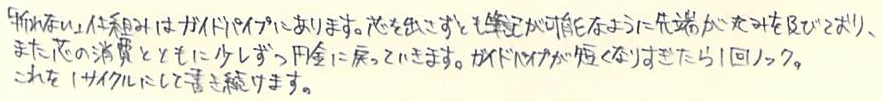 「折れない」仕組みはガイドパイプにあります。芯を出さずとも筆記が可能なように先端が丸みを及びており、
また芯の消費とともに少しずつ円金に戻っていきます。ガイドパイプが短くなりすぎたら1回ノック。
これを1サイクルにして書き続けます。